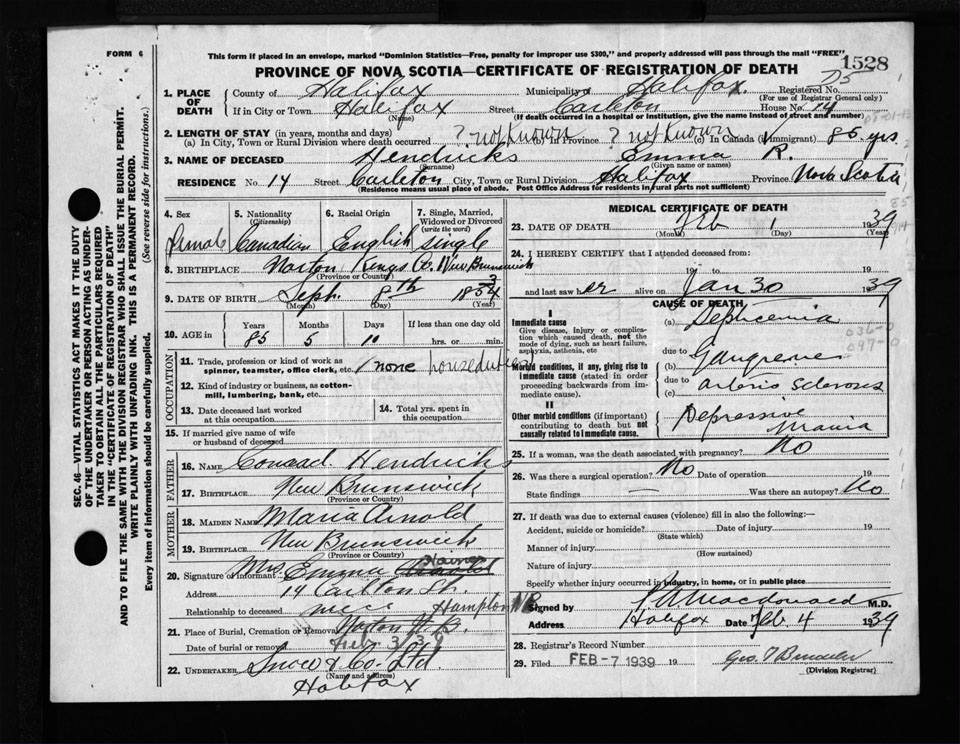 FORM 6
This form if placed in an envelope, marked "Dominion Statistics—Free, penalty for improper use $300," and properly addressed will pass through the mail "FREE"
1528
PROVINCE OF NOVA SCOTIA—CERTIFICATE OF REGISTRATION OF DEATH
1. PLACE OF DEATH County of Halifax Municipality of Halifax Registered No. D5
(For use of Registrar General only)
If in City or Town Halifax (Name) Street Carleton House No. 14
(If death occurred in a hospital or institution, give its name instead of street and number)
2. LENGTH OF STAY (in years, months and days)
(a) In City, Town or Rural Division where death occurred ? not Known (b) In Province ? not Known (c) In Canada (if immigrant) 85 yrs.
3. NAME OF DECEASED Hendricks Emma R.
(Surname) (Given name or names)
RESIDENCE No. 14 Street Carleton City, Town or Rural Division Halifax Province Nova Scotia
(Residence means usual place of abode. Post Office Address for residents in rural parts not sufficient)
4. Sex female
5. Nationality (Citizenship) Canadian
6. Racial Origin English
7. Single, Married, Widowed or Divorced (write the word) single
8. BIRTHPLACE Norton Kings Co. New Brunswick
(Province or Country)
9. DATE OF BIRTH Sept. 8th 1853
(Month) (Day) (Year)
10. AGE in Years Months Days If less than one day old
85 5 hrs. or min.
OCCUPATION
11. Trade, profession or kind of work as spinner, teamster, office clerk, etc. none houseduties
12. Kind of industry or business, as cotton-mill, lumbering, bank, etc.
13. Date deceased last worked at this occupation
14. Total yrs. spent in this occupation
15. If married give name of wife or husband of deceased
FATHER
16. NAME Conrad Hendricks
17. BIRTHPLACE New Brunswick
(Province or Country)
MOTHER
18. MAIDEN NAME Maria Arnold
19. BIRTHPLACE New Brunswick
(Province or Country)
20. Signature of informant Mrs Emma
Address 14 Carlton St.
Relationship to deceased niece Hampton NB
21. Place of Burial, Cremation or Removal Norton N.B.
Date of burial or removal Feb. 3/39
22. UNDERTAKER Snow & Co. Ltd
(Name and address)
Halifax
MEDICAL CERTIFICATE OF DEATH
23. DATE OF DEATH Feb 1 1939
(Month) (Day) (Year)
24. I HEREBY CERTIFY that I attended deceased from:
19 to 19
and last saw her alive on Jan 30 1939
CAUSE OF DEATH
I
Immediate cause
Give disease, injury or complication which caused death, not the mode of dying, such as heart failure, asphyxia, asthenia, etc
(a) Septicemia
due to
Morbid conditions, if any, giving rise to immediate cause (stated in order proceeding backwards from immediate cause).
(b) Gangrene
due to
(c) arterio sclerosis
036-0
097-0
II
Other morbid conditions (if important) contributing to death but not causally related to immediate cause.
Depressive Mania
25. If a woman, was the death associated with pregnancy? No
26. Was there a surgical operation? No Date of operation 19
State findings — Was there an autopsy? No
27. If death was due to external causes (violence) fill in also the following:—
Accident, suicide or homicide? Date of injury 19
(State which)
Manner of injury
(How sustained)
Nature of injury
Specify whether injury occurred in industry, in home, or in public place
Signed by Macdonald M.D.
Address Halifax Date Feb. 4 1939
28. Registrar's Record Number
29. Filed FEB -7 1939 19
(Division Registrar)
SEC. 46—VITAL STATISTICS ACT MAKES IT THE DUTY
OF THE UNDERTAKER OR PERSON ACTING AS UNDERTAKER TO OBTAIN ALL THE PARTICULARS REQUIRED
IN THE "CERTIFICATE OF REGISTRATION OF DEATH"
AND TO FILE THE SAME WITH THE DIVISION REGISTRAR WHO SHALL ISSUE THE BURIAL PERMIT.
WRITE PLAINLY WITH UNFADING INK. THIS IS A PERMANENT RECORD.
Every item of information should be carefully supplied. (See reverse side for instructions.)